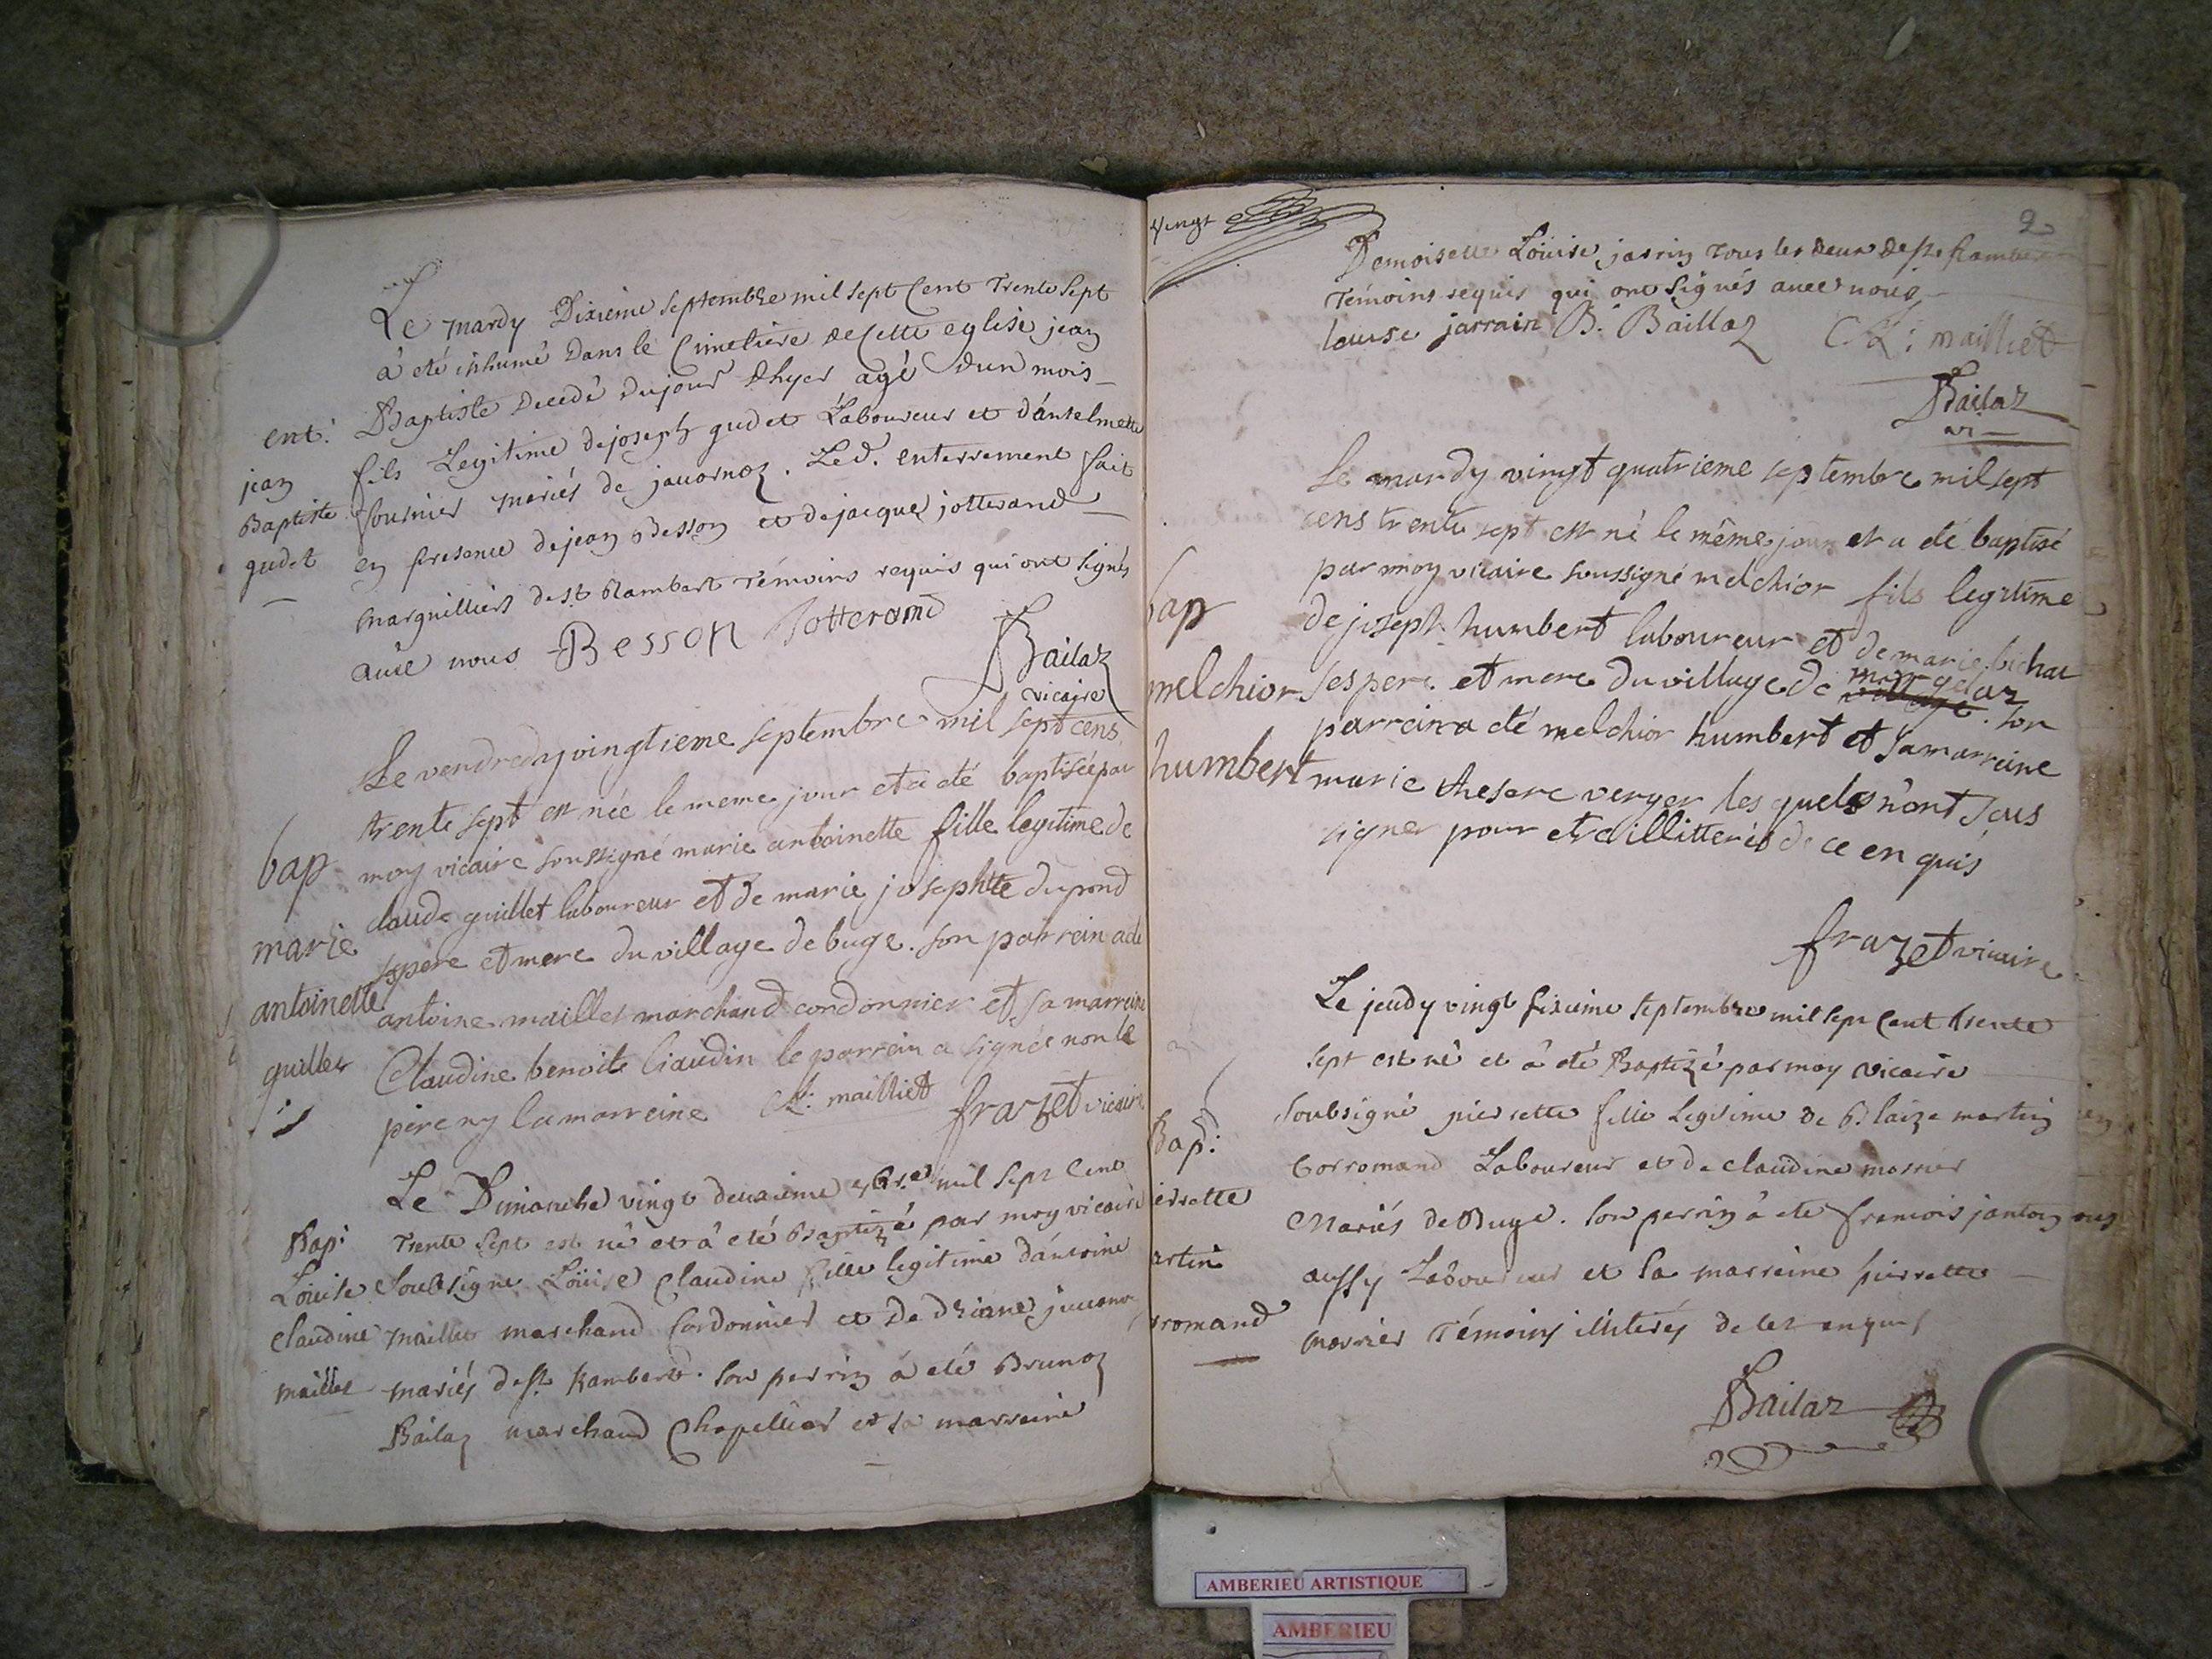 Le mardy Dixieme septembre mil sept Cent Trente sept
à eté inhumé Dans le Cimetiere de Cette eglise jean
Baptiste Decedé Dujour dhyer agé dun mois
fils Legitime dejoseph gudet Laboureur et dánselmette
fournier mariés de javornoz. Led. enterrement fait
en presence dejean Besson et dejacque jotterand
marguilliers de st Rambert Témoins requis qui ont signés
avec nous Besson Jotterand
Bailaz
vicaire
ent:
jean
Baptiste
gudet
Le vendredy vingtieme septembre mil sept cens
trente sept est née le meme jour et a eté baptisée par
moy vicaire soussigné marie antoinette fille legitime de
claude guillet laboureur et de marie josephtte dupond
ses pere et mere du village de buge. son parrein a eté
antoine maillet marchand cordonnier et sa marreine
Claudine benoite Ciaudin le parrein a signé non le
pere ny la marreine A: mailliet frazet vicaire
bap
marie
antoinette
guillet
Le Dimanche vingt deuxieme 7bre mil sept Cent
Trente Sept est né et à eté Baptizé par moy vicaire
Soubsigne Loüise Claudine fille legitime dántoine
maillet marchand Cordonnier et De driane juveno
mariés de st Rambert. son perrin á eté Brunoz
Bailaz marchand Chapellier et sa marreine
Bap:
Loüise
Claudine
maillet
vingt
2
Demoiselle Loüise jarrin Tous les deux de st Rambert
Témoins requis qui ont signés avec nous
louise jarrain B. Baillaz mailliet
Bailaz
Le mardy vingt quatrieme septembre mil sept
cens trente sept est né le même jour et a eté baptisé
par moy vicaire soussigné melchior fils legitime
de joseph humbert laboureur et de marie bichat
ses pere et mere du village de morgelaz son
parrein a eté melchior humbert et sa marreine
marie therese verger les quels n'ont sçus
signer pour etre illitterés de ce enquis
frazet vicaire
bap
melchior
humbert
Le jeudy vingt sixieme septembre mil sept Cent trente
sept est né et à eté Baptizé par moy vicaire
Soubsigné pierrette fille Legitime de Blaize martin
Corromand Laboureur et de claudine mornier
Mariés de Buge. son perrin à eté francois jantoz
aussy Laboureur et la marreine pierrette
mornier Témoins illiterés de les enquis
Bailaz
Bap:
ierrette
artin
rromand
AMBERIEU ARTISTIQUE
AMBERIEU